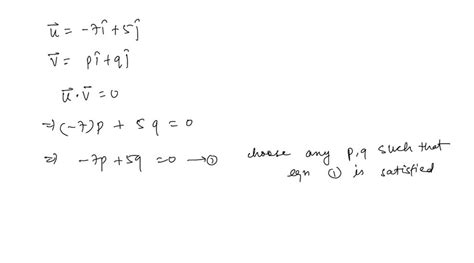 u⃗ = -7î + 5ĵ
v⃗ = pî + qĵ
u⃗ · v⃗ = 0
⇒ (-7)p + 5q = 0
⇒ -7p + 5q = 0 → ① choose any p, q such that
eqn ① is satisfied